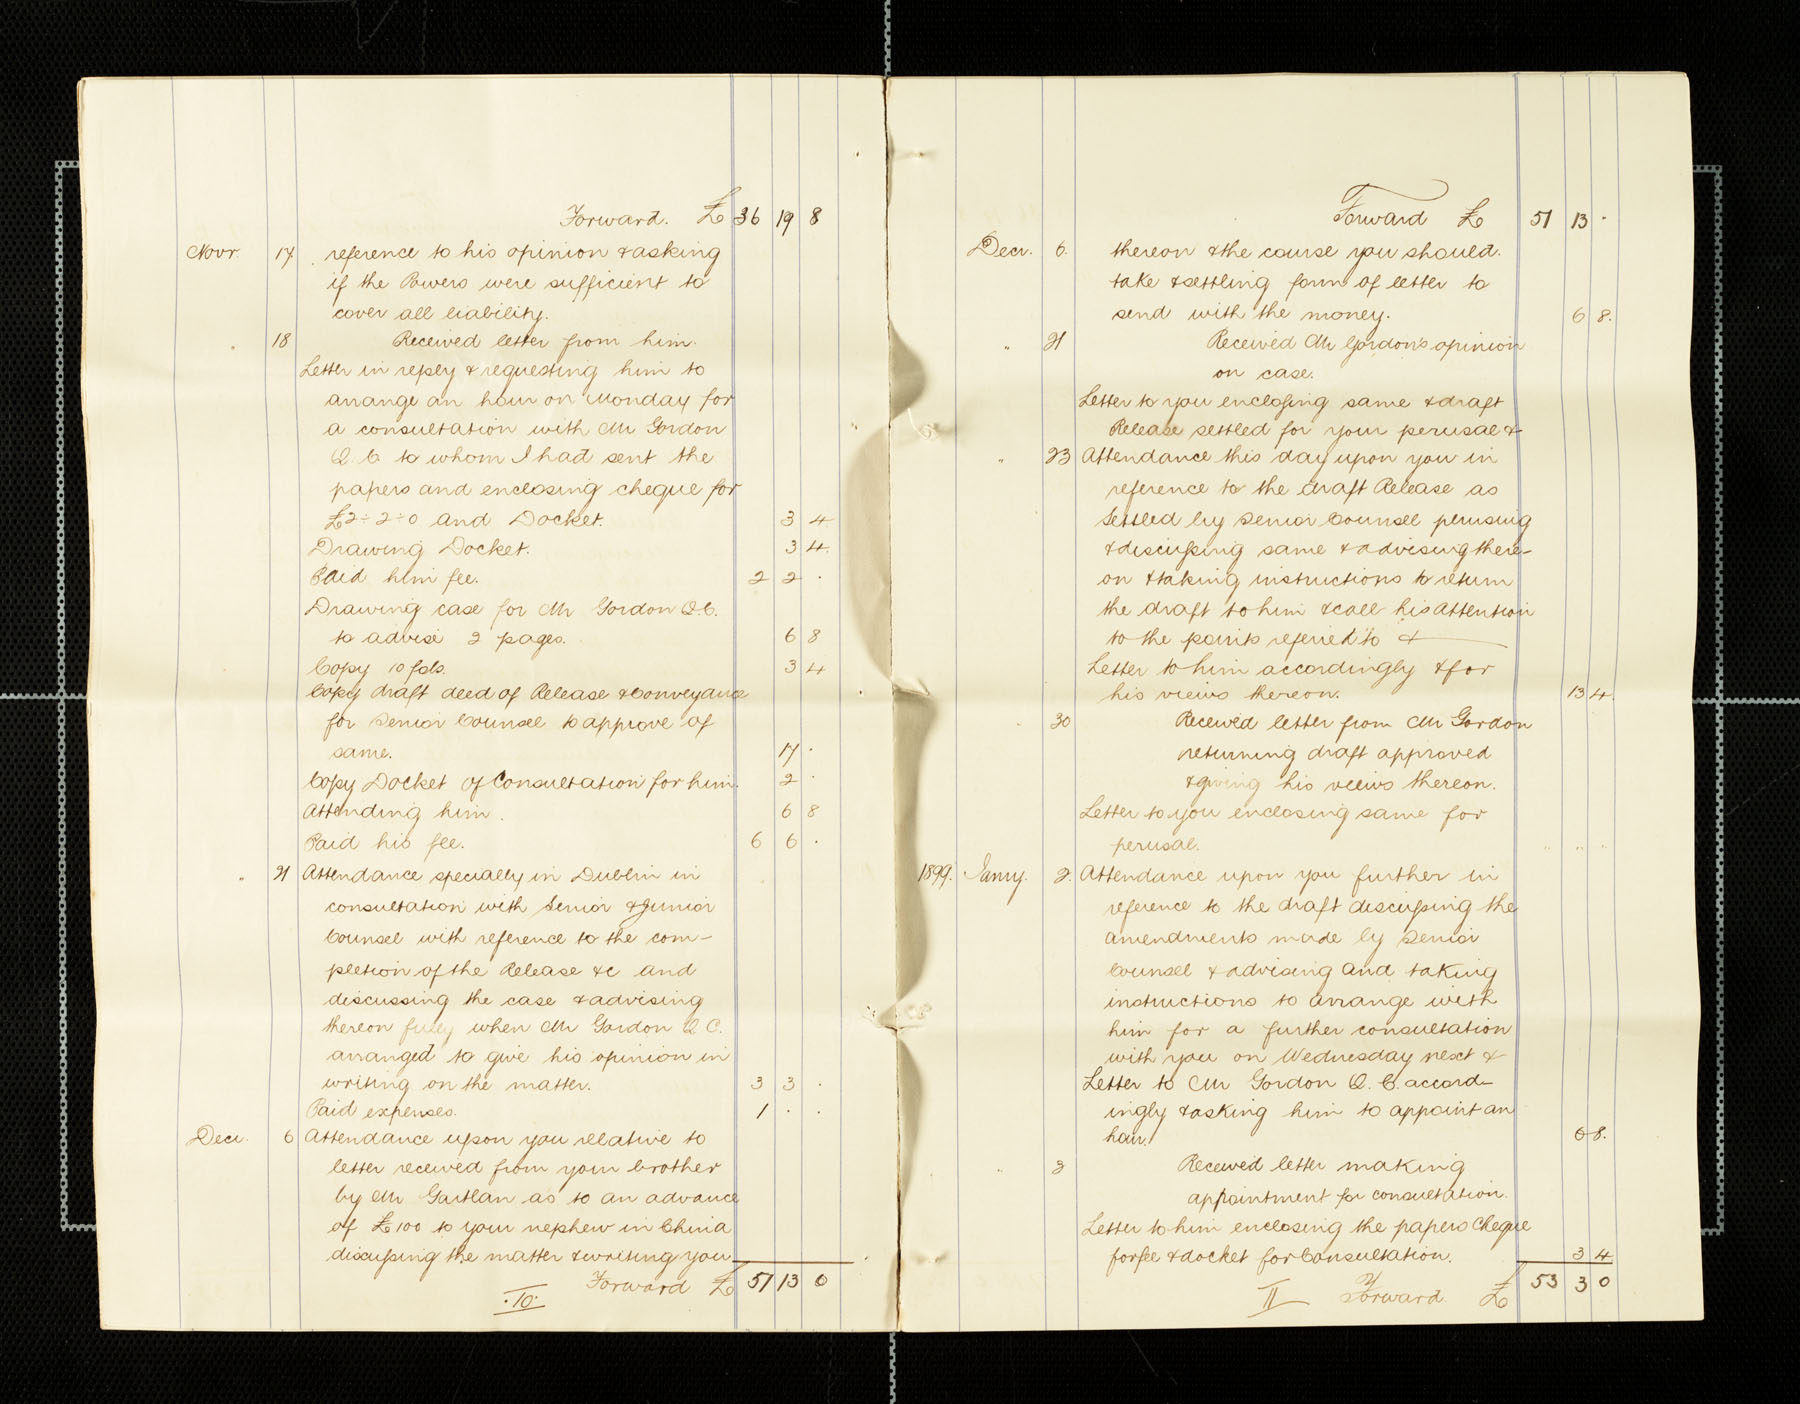 Forward. £ 36 19 8
Novr. 17 reference to his opinion & asking
if the Powers were sufficient to
cover all liability.
" 18 Received letter from him.
Letter in reply & requesting him to
arrange an hour on Monday for
a consultation with Mr Gordon
Q.C to whom I had sent the
papers and enclosing cheque for
£2-2-0 and Docket. 3 4
Drawing Docket. 3 4.
Paid him fee. 2 2 .
Drawing case for Mr Gordon Q.C.
to advise 2 pages. 6 8
Copy 10 fols. 3 4
Copy draft deed of Release & Conveyance
for Senior Counsel to approve of
same. 17 .
Copy Docket of Consultation for him. 2 .
Attending him. 6 8
Paid his fee. 6 6 .
" 21 Attendance specially in Dublin in
consultation with Senior & Junior
Counsel with reference to the com-
pletion of the Release &c and
discussing the case & advising
thereon fully when Mr Gordon Q C.
arranged to give his opinion in
writing on the matter. 3 3 .
Paid expenses. 1 . .
Decr. 6 Attendance upon you relative to
letter received from your brother
by Mr Gartlan as to an advance
of £100 to your nephew in China
discussing the matter & writing you
Forward £ 51 13 0
.10.
Forward £ 51 13 .
Decr. 6. thereon & the course you should.
take & settling form of letter to
send with the money. 6 8.
" 21 Received Mr Gordon's opinion
on case.
Letter to you enclosing same & draft
Release settled for your perusal &
" 23 Attendance this day upon you in
reference to the draft Release as
settled by Senior Counsel perusing
& discussing same & advising there-
on & taking instructions to return
the draft to him & call his attention
to the points referred to &
Letter to him accordingly & for
his views thereon. 13 4.
30 Received letter from Mr Gordon
returning draft approved
& giving his views thereon.
Letter to you enclosing same for
perusal. " " "
1899. Jany. 2. Attendance upon you further in
reference to the draft discussing the
amendments made by Senior
Counsel & advising and taking
instructions to arrange with
him for a further consultation
with you on Wednesday next &
Letter to Mr Gordon Q.C. accord-
ingly & asking him to appoint an
hour. 6 8.
" 3 Received letter making
appointment for consultation.
Letter to him enclosing the papers Cheque
for fee & docket for Consultation. 3 4
11 Forward £ 53 3 0